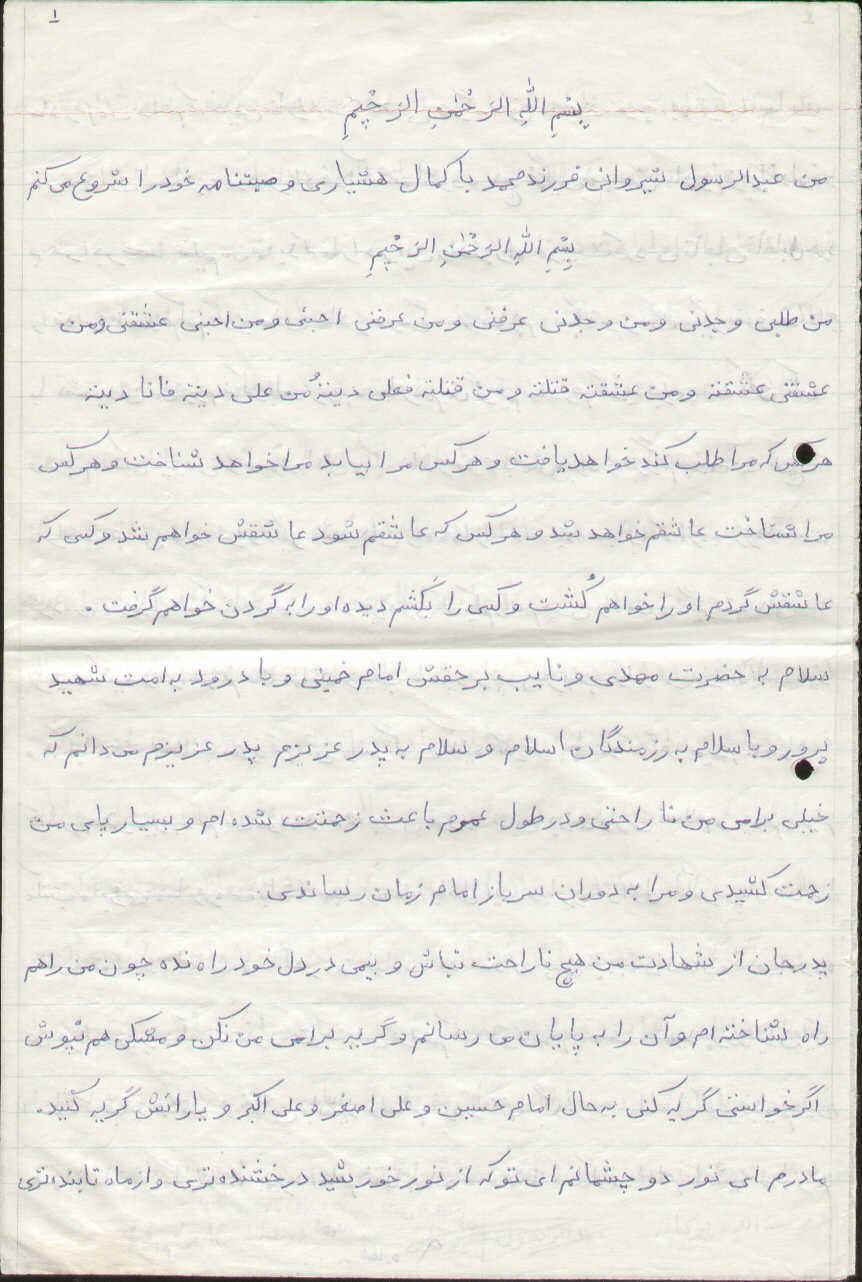 ١
بِسْمِ اللّٰهِ الرَحْمٰنِ الرَحْیمِ
من عبدالرسول شیروانی فرزند محمد با کمال هشیاری وصیتنامه خود را شروع می کنم
بِسْمِ اللّٰهِ الرَحْمٰنِ الرَحْیمِ
من طلبنی وجدنی ومن وجدنی عرفنی ومن عرفنی احبنی ومن احبنی عشقنی ومن
عشقنی عشقته ومن عشقته قتلته ومن قتلته فعلی دیتهُ من علی دیته فانا دیته
هرکس که مرا طلب کند خواهد یافت و هرکس مرا بیابد مرا خواهد شناخت و هرکس
مرا شناخت عاشقم خواهد شد و هرکس که عاشقم شود عاشقش خواهم شد و کسی که
عاشقش گردم او را خواهم کُشت و کسی را بَکشم دیده او را به گردن خواهم گرفت .
سلام به حضرت مهدی و نایب برحقش امام خمینی و با درود به امت شهید
پرور و با سلام به رزمندگان اسلام و سلام به پدر عزیزم پدر عزیزم می دانم که
خیلی برای من ناراحتی و در طول عمرم باعث زحمتت شده ام و بسیار پای من
زحمت کشیدی و مرا به دوران سرباز امام زمان رساندی.
پدر جان از شهادت من هیچ ناراحت نباش و بیمی در دل خود راه نده چون من راهم
راه شناخته ام و آن را به پایان می رسانم و گریه برای من نکن و مشکی هم نپوش
اگر خواستی گریه کنی به حال امام حسین و علی اصغر و علی اکبر و یارانش گریه کنید.
مادرم ای نور دو چشمانم ای تو که از نور خورشید درخشنده تری و از ماه تابنده تری